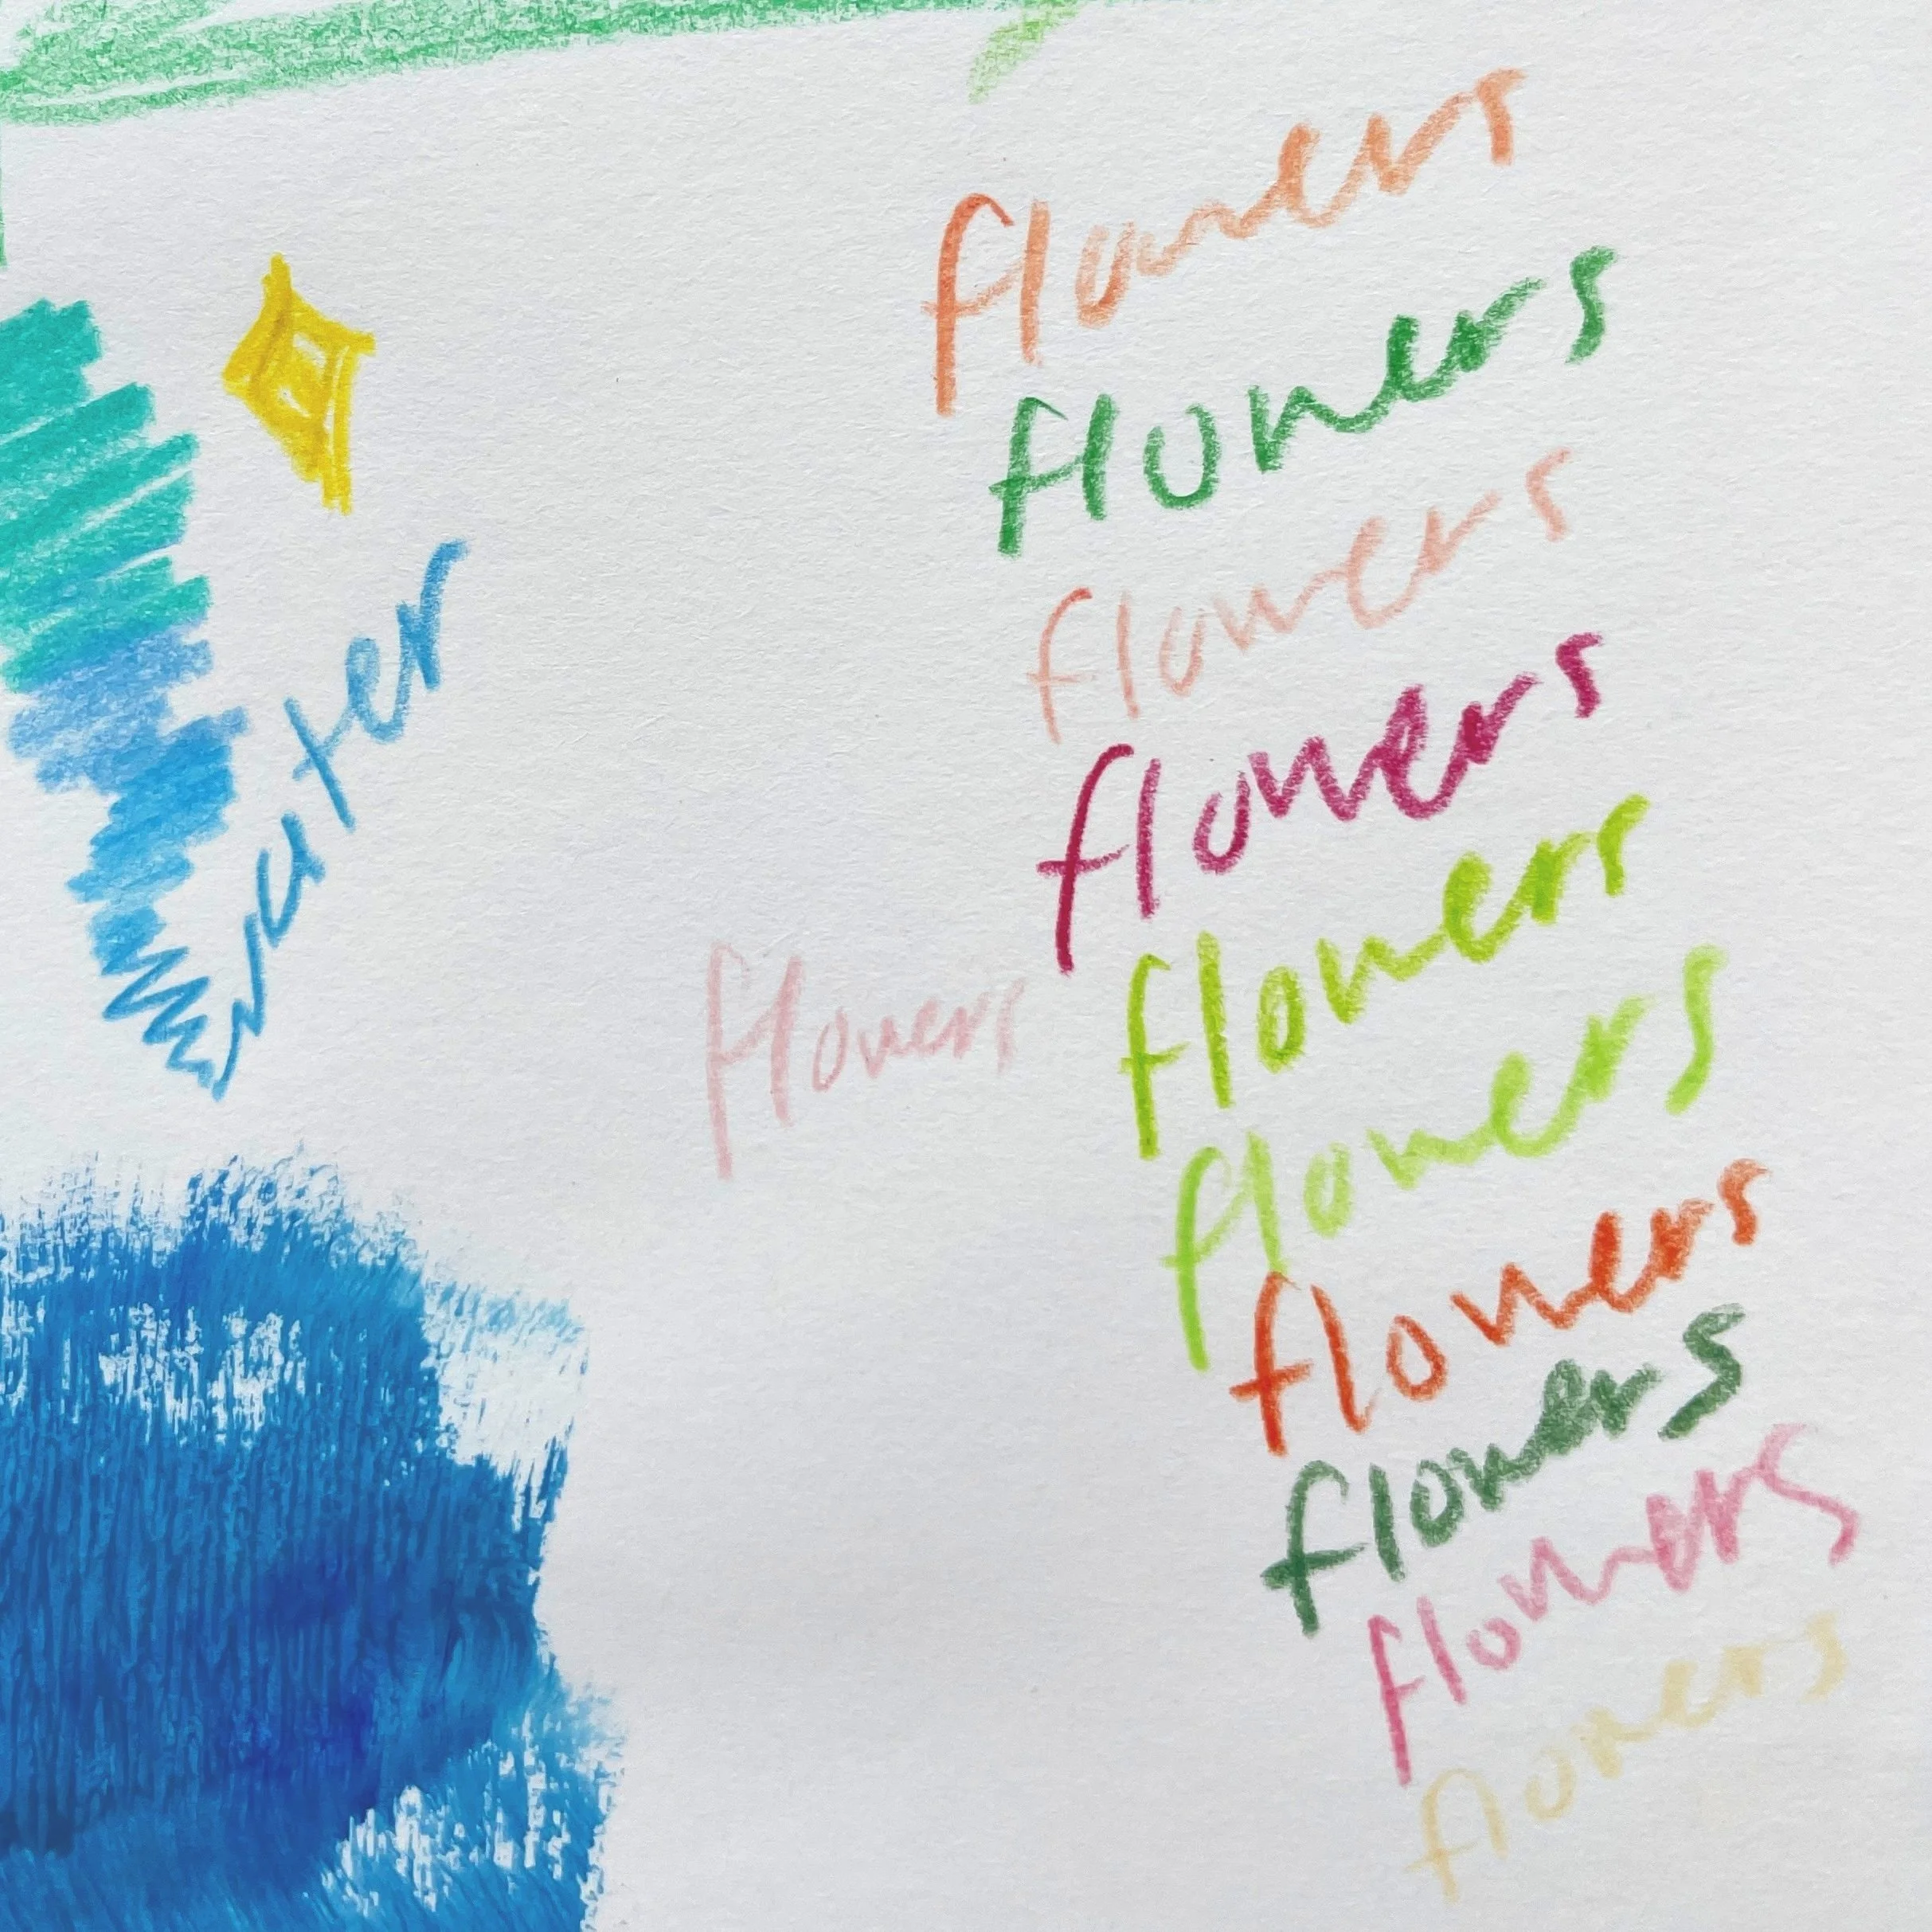 flowers
flowers
flowers
water
flowers
flowers
flowers
flowers
flowers
flowers
flowers
flowers